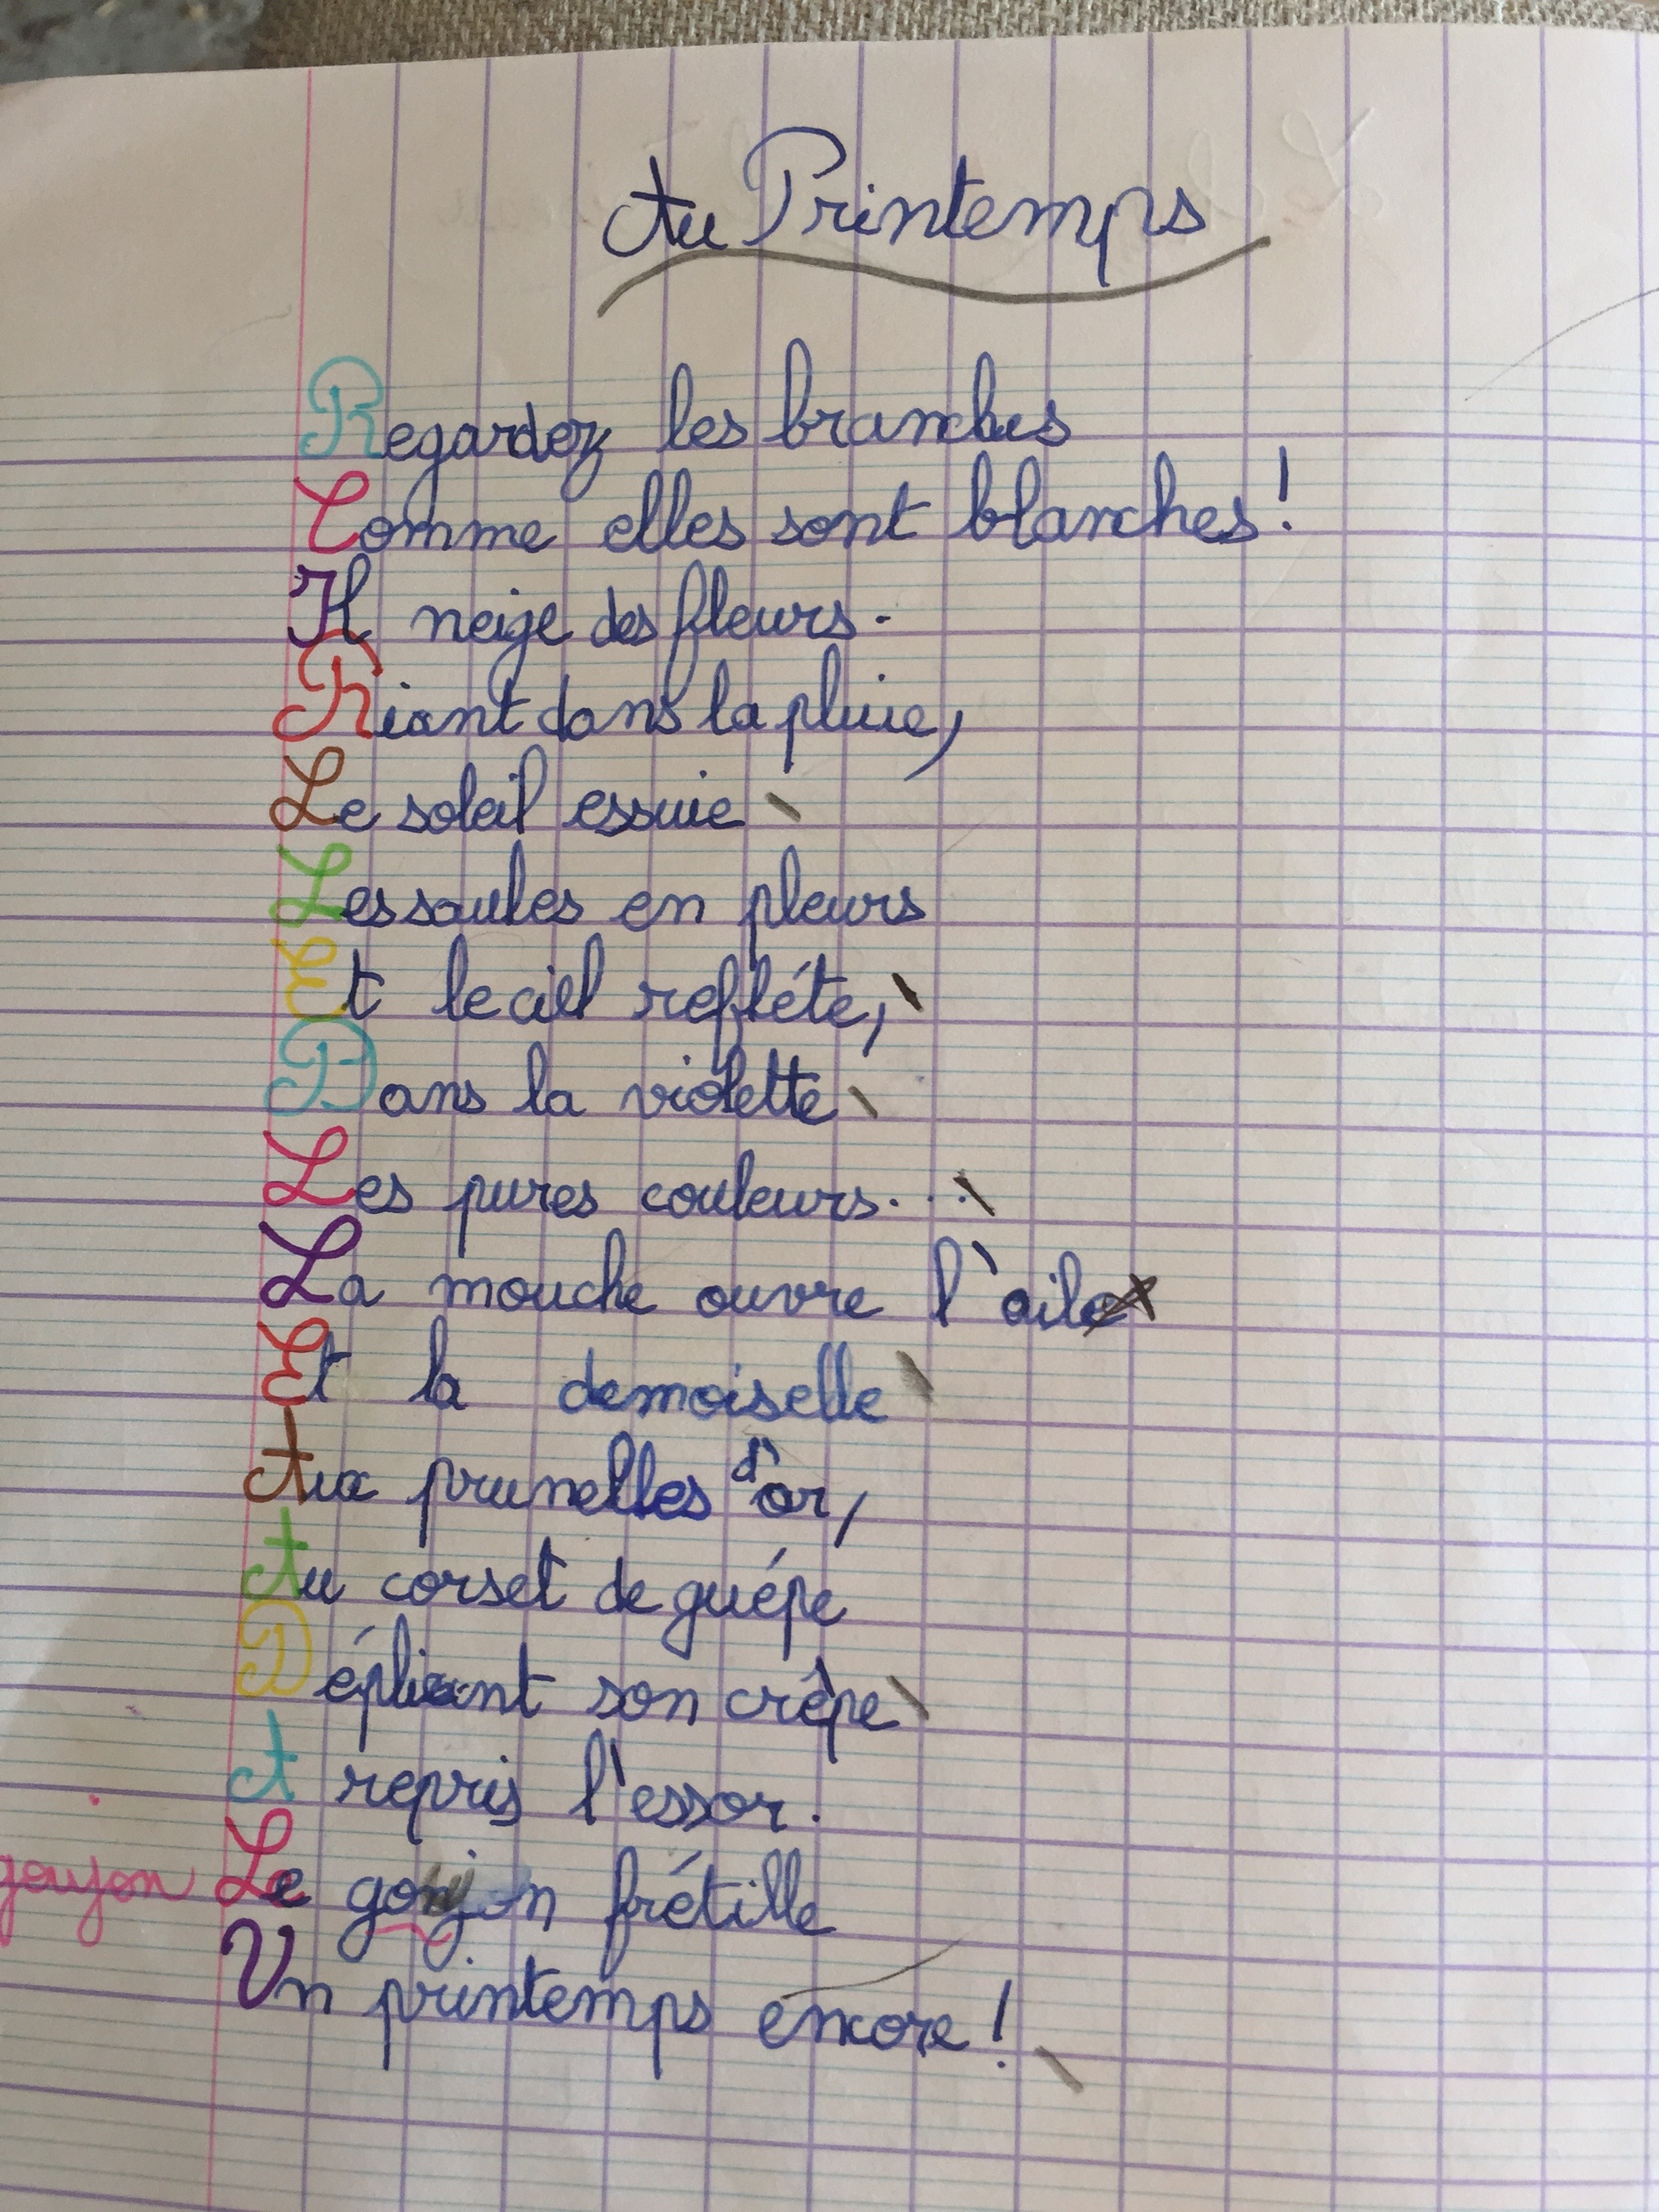 Au Printemps
Regardez les branches
Comme elles sont blanches !
Il neige des fleurs.
Riant dans la pluie,
Le soleil essuie
Les saules en pleurs
Et le ciel refléte,
Dans la violette
Les pures couleurs...
La mouche ouvre l'aile
Et la demoiselle
Aux prunelles d'or,
Au corset de guépe
Dépliant son crêpe
A repris l'essor.
goujon Le goujon frétille
Un printemps encore !